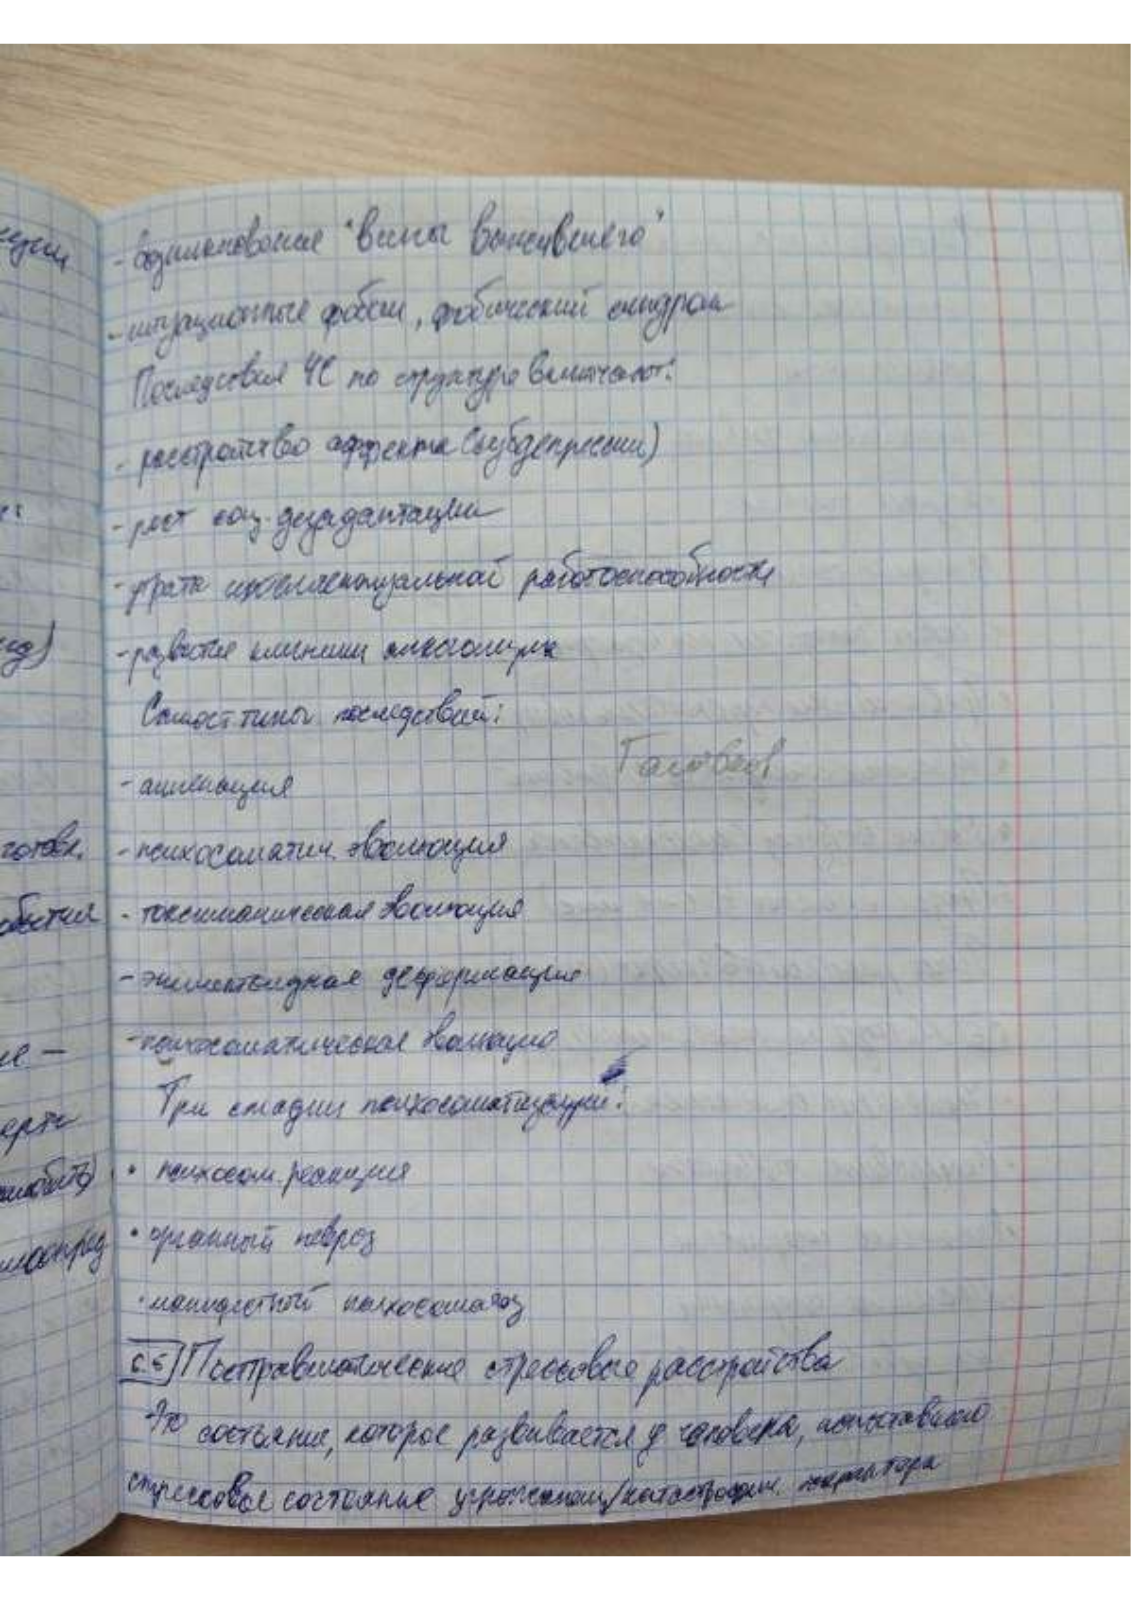 - возникновение "вины выжившего"
- ситуационные фобии, фобический синдром
Последствия ЧС по структуре включают:
- расстройство аффекта (субдепрессии)
- рост соц. дезадаптации
- утрата интеллектуальной работоспособности
- развитие клиники алкоголизма
типа последствий:
- астенизация
готовн.
- психосоматич. эволюция
события
- токсиманическая эволюция
- эпилептоидная деформация
- психосоматическая эволюция
Три стадии психосоматизации:
• психосом. реакция
• органный невроз
• манифестный психосоматоз
6.5 Посттравматические стрессовые расстройства
Это состояние, которое развивается у человека, испытавшего
стрессовое состояние угрожающ/катастрофич. характера